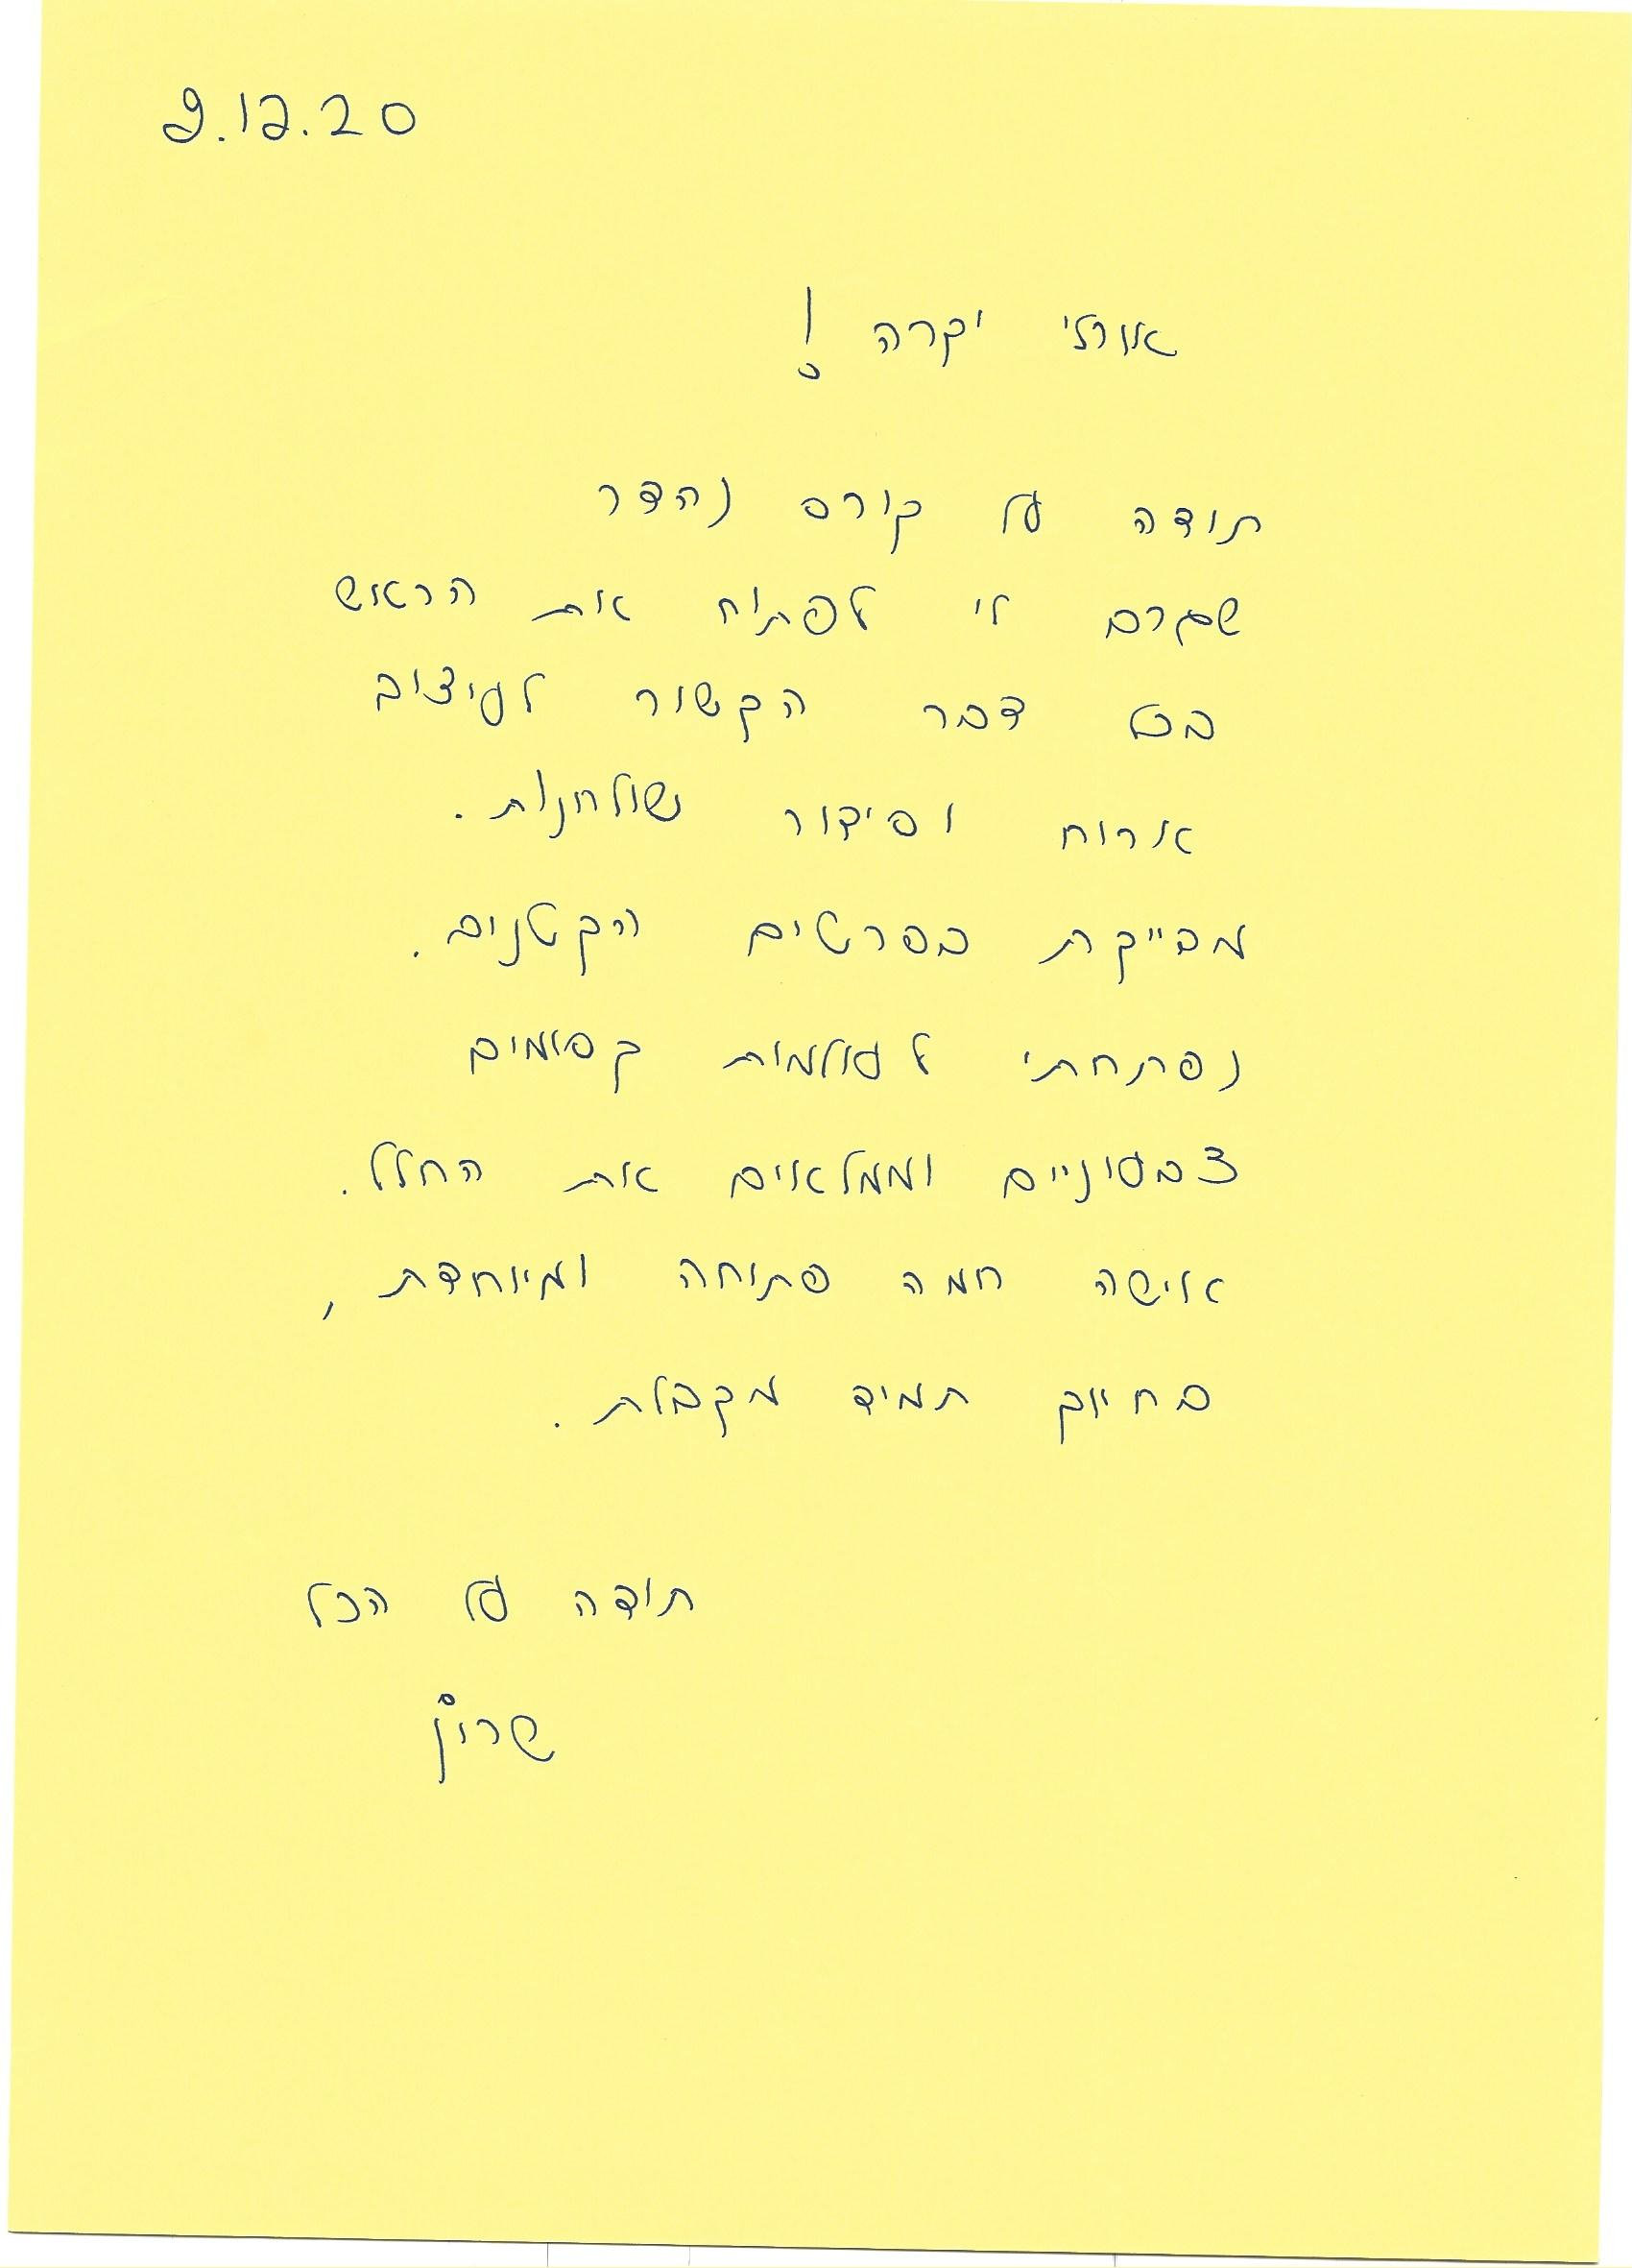 9.12.20
אורלי יקרה!
תודה על קורס נהדר
שגרם לי לפתוח את הראש
בכל דבר הקשור לעיצוב
ארוח וסידור שולחנות.
מבייקת בפרטים הקטנים.
נפתחתי לעולמות קסומים
צבעוניים וממלאים את החלל.
אישה חמה פתוחה ומיוחדת,
בחיוך תמיד מקבלת.
תודה על הכל
שרון